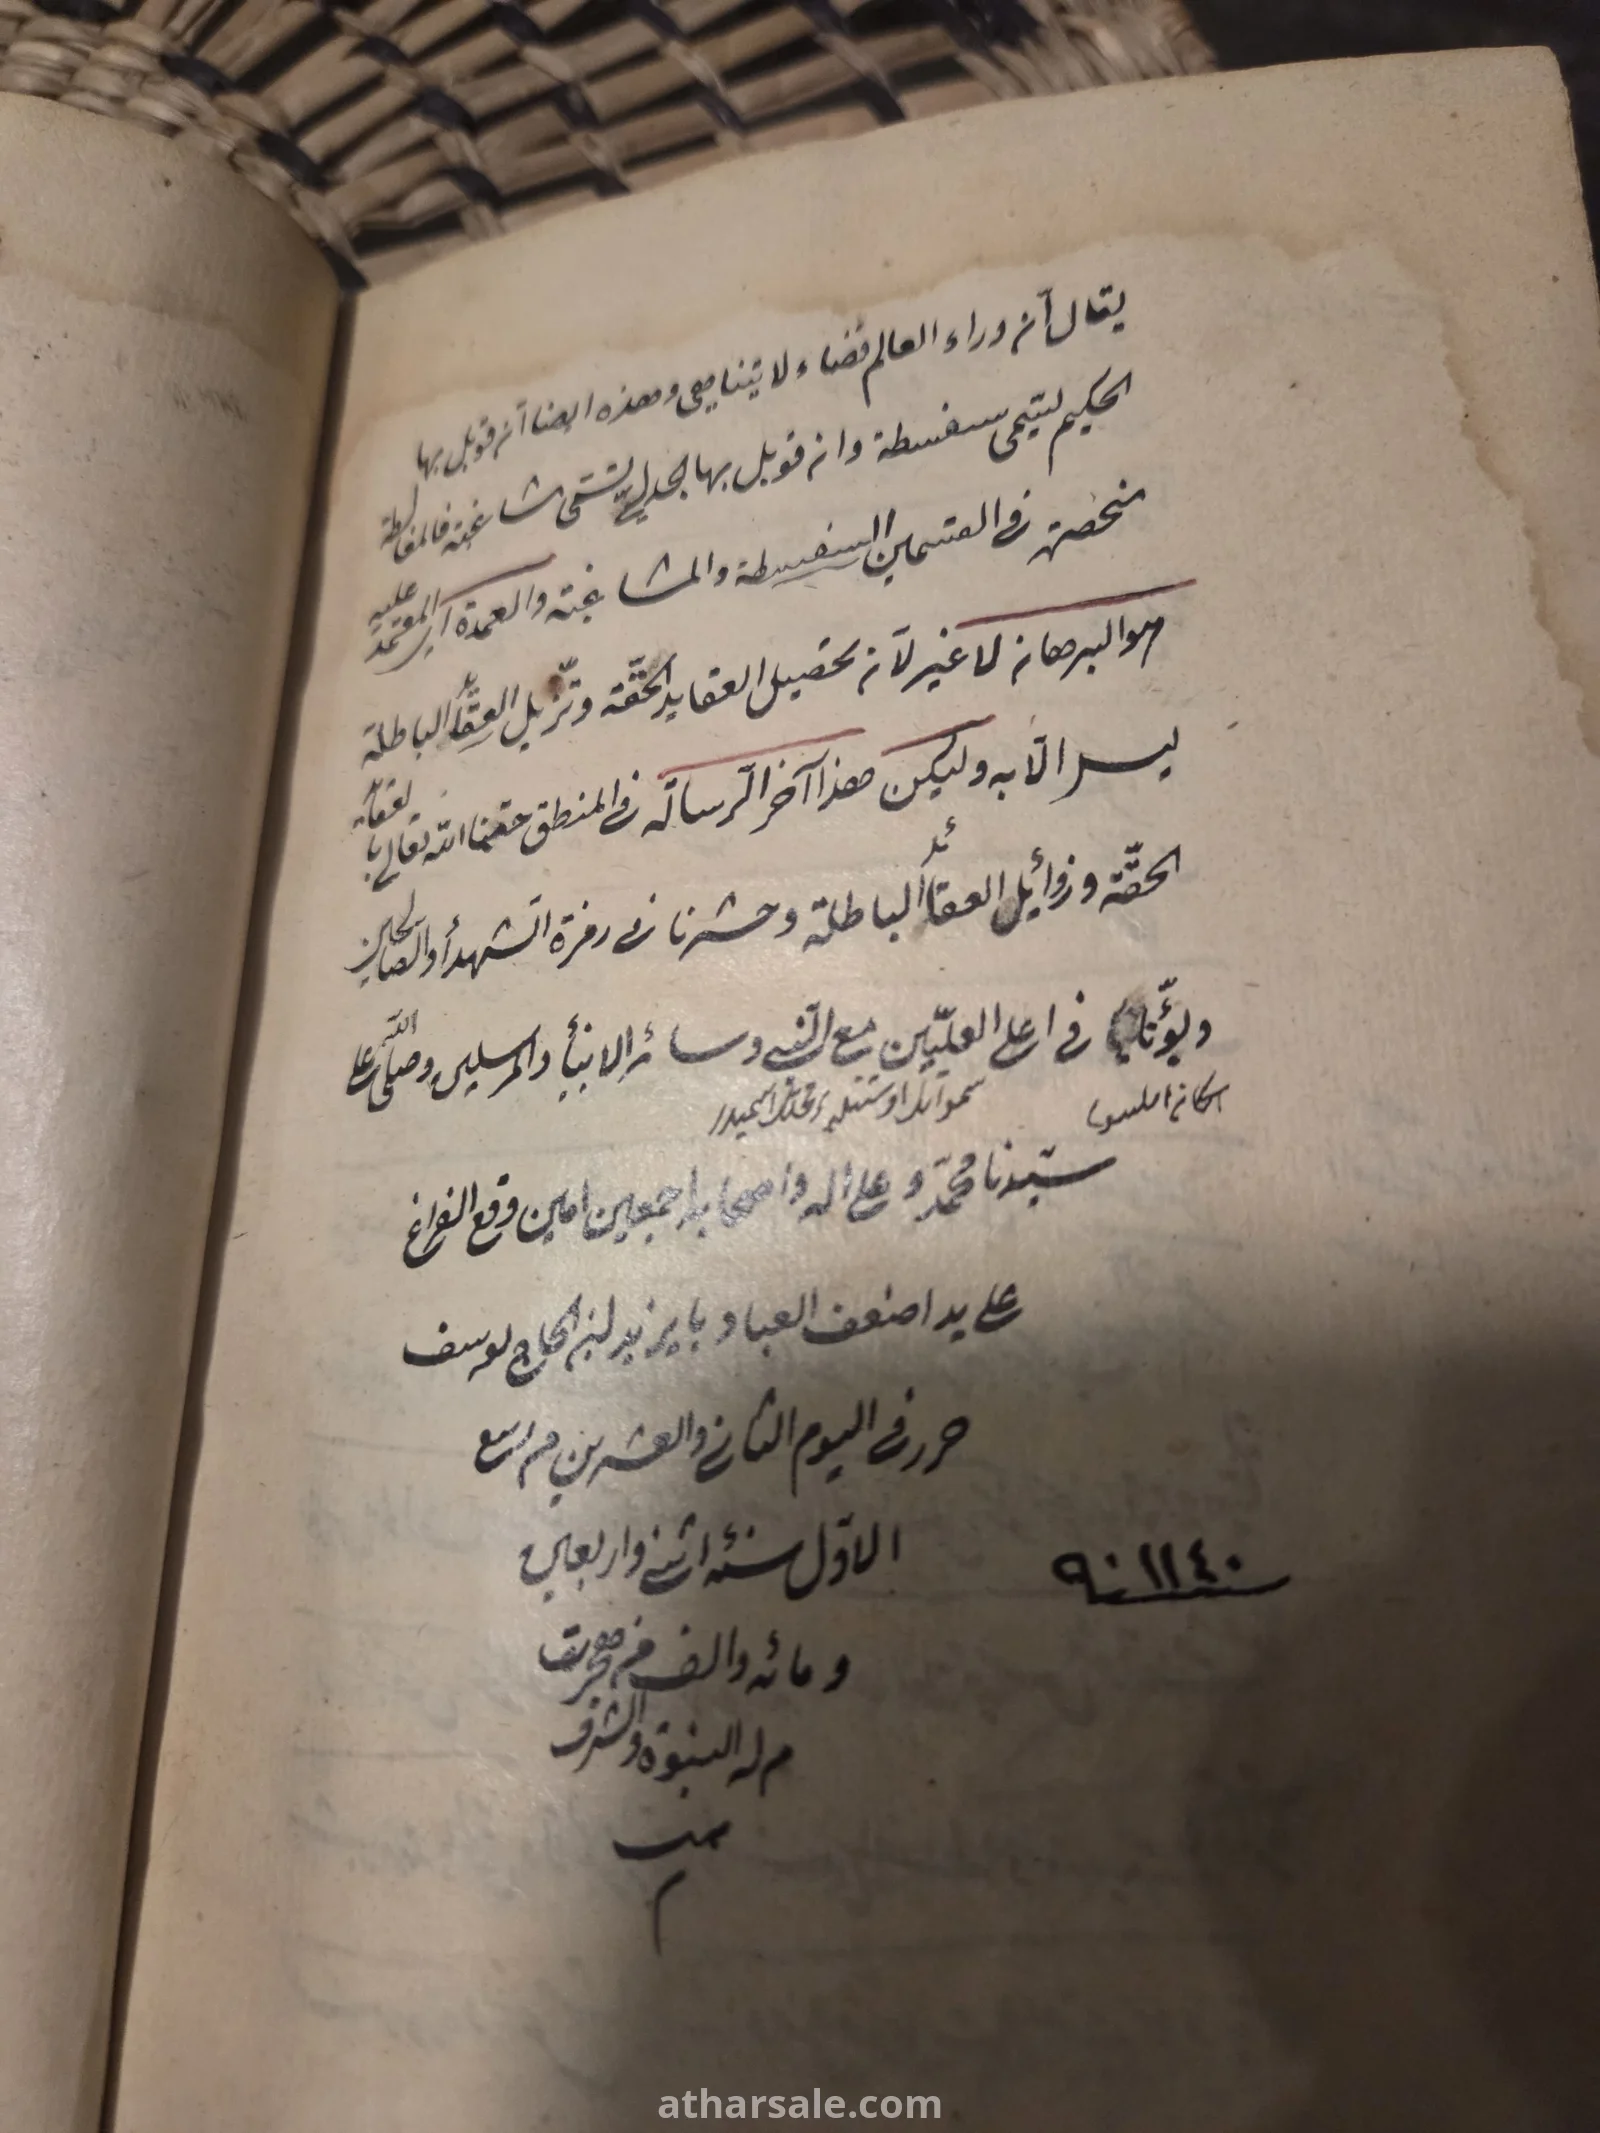 يقال ان وراء العالم فضاء لا يتناهى وهذه ايضا ان قوبل بها
الحكيم ليتمى سفسطة وان قوبل بها الجدلي تسمى مشاغبة فالمغالطة
منحصرة في القسمين السفسطة والمشاغبة والعمدة اى المعتمد عليه
هو البرهان لا غير لان تحصيل العقايد الحقة وتزييل العقائد الباطلة
ليس الا به وليكن هذا آخر الرسالة في المنطق حققنا الله تعالى بالعقائد
الحقة وزوائيل العقائد الباطلة وحشرنا في زمرة الشهدأ والصالحين
وبوّئنا في اعلى العليّين مع النّبي وسائر الانبيأ والمرسلين وصلى الله على
سيّدنا محمّد وعلى اله واصحابه اجمعين امين وقع الفراغ
على يد اضعف العباد بايزيد ابن الحاج يوسف
حرر في اليوم الثاني والعشرين من ربيع
الاوّل سنه اثنى واربعين
سنة ١١٤٠
ومائه والف من هجرة
من له النبوة والشرف
تمت
م
atharsale.com